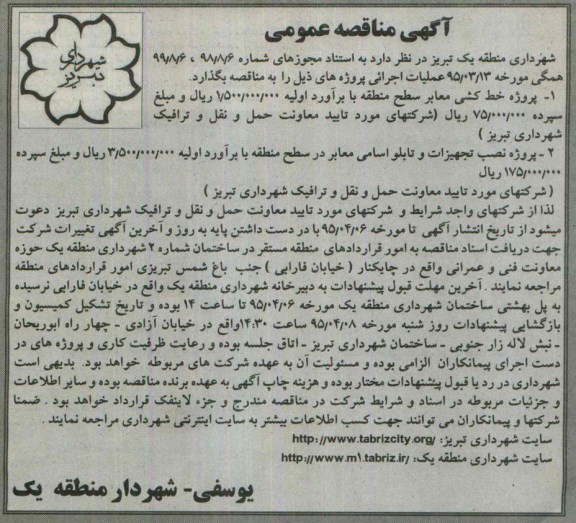 آگهی مناقصه عمومی
شهرداری تبریز
شهرداری منطقه یک تبریز در نظر دارد به استناد مجوزهای شماره ۹۸/۸/۶ ، ۹۹/۸/۶
همگی مورخه ۹۵/۰۳/۱۳ عملیات اجرائی پروژه های ذیل را به مناقصه بگذارد.
۱- پروژه خط کشی معابر سطح منطقه با برآورد اولیه ۱/۵۰۰/۰۰۰/۰۰۰ ریال و مبلغ
سپرده ۷۵/۰۰۰/۰۰۰ ریال (شرکتهای مورد تایید معاونت حمل و نقل و ترافیک
شهرداری تبریز )
۲ - پروژه نصب تجهیزات و تابلو اسامی معابر در سطح منطقه با برآورد اولیه ۳/۵۰۰/۰۰۰/۰۰۰ ریال و مبلغ سپرده
۱۷۵/۰۰۰/۰۰۰ ریال
( شرکتهای مورد تایید معاونت حمل و نقل و ترافیک شهرداری تبریز )
لذا از شرکتهای واجد شرایط و شرکتهای مورد تایید معاونت حمل و نقل و ترافیک شهرداری تبریز دعوت
میشود از تاریخ انتشار آگهی تا مورخه ۹۵/۰۴/۰۶ با در دست داشتن پایه به روز و آخرین آگهی تغییرات شرکت
جهت دریافت اسناد مناقصه به امور قراردادهای منطقه مستقر در ساختمان شماره ۲ شهرداری منطقه یک حوزه
معاونت فنی و عمرانی واقع در چایکنار ( خیابان فارابی ) جنب باغ شمس تبریزی امور قراردادهای منطقه
مراجعه نمایند . آخرین مهلت قبول پیشنهادات به دبیرخانه شهرداری منطقه یک واقع در خیابان فارابی نرسیده
به پل بهشتی ساختمان شهرداری منطقه یک مورخه ۹۵/۰۴/۰۶ تا ساعت ۱۴ بوده و تاریخ تشکیل کمیسیون و
بازگشایی پیشنهادات روز شنبه مورخه ۹۵/۰۴/۰۸ ساعت ۱۴:۳۰ واقع در خیابان آزادی - چهار راه ابوریحان
- نبش لاله زار جنوبی - ساختمان شهرداری تبریز - اتاق جلسه بوده و رعایت ظرفیت کاری و پروژه های در
دست اجرای پیمانکاران الزامی بوده و مسئولیت آن به عهده شرکت های مربوطه خواهد بود. بدیهی است
شهرداری در رد یا قبول پیشنهادات مختار بوده و هزینه چاپ آگهی به عهده برنده مناقصه بوده و سایر اطلاعات
و جزئیات مربوطه در اسناد و شرایط شرکت در مناقصه مندرج و جزء لاینفک قرارداد خواهد بود . ضمنا
شرکتها و پیمانکاران می توانند جهت کسب اطلاعات بیشتر به سایت اینترنتی شهرداری مراجعه نمایند .
سایت شهرداری تبریز: http://www.tabrizcity.org/
سایت شهرداری منطقه یک: http://www.m1.tabriz.ir/
یوسفی- شهردار منطقه یک